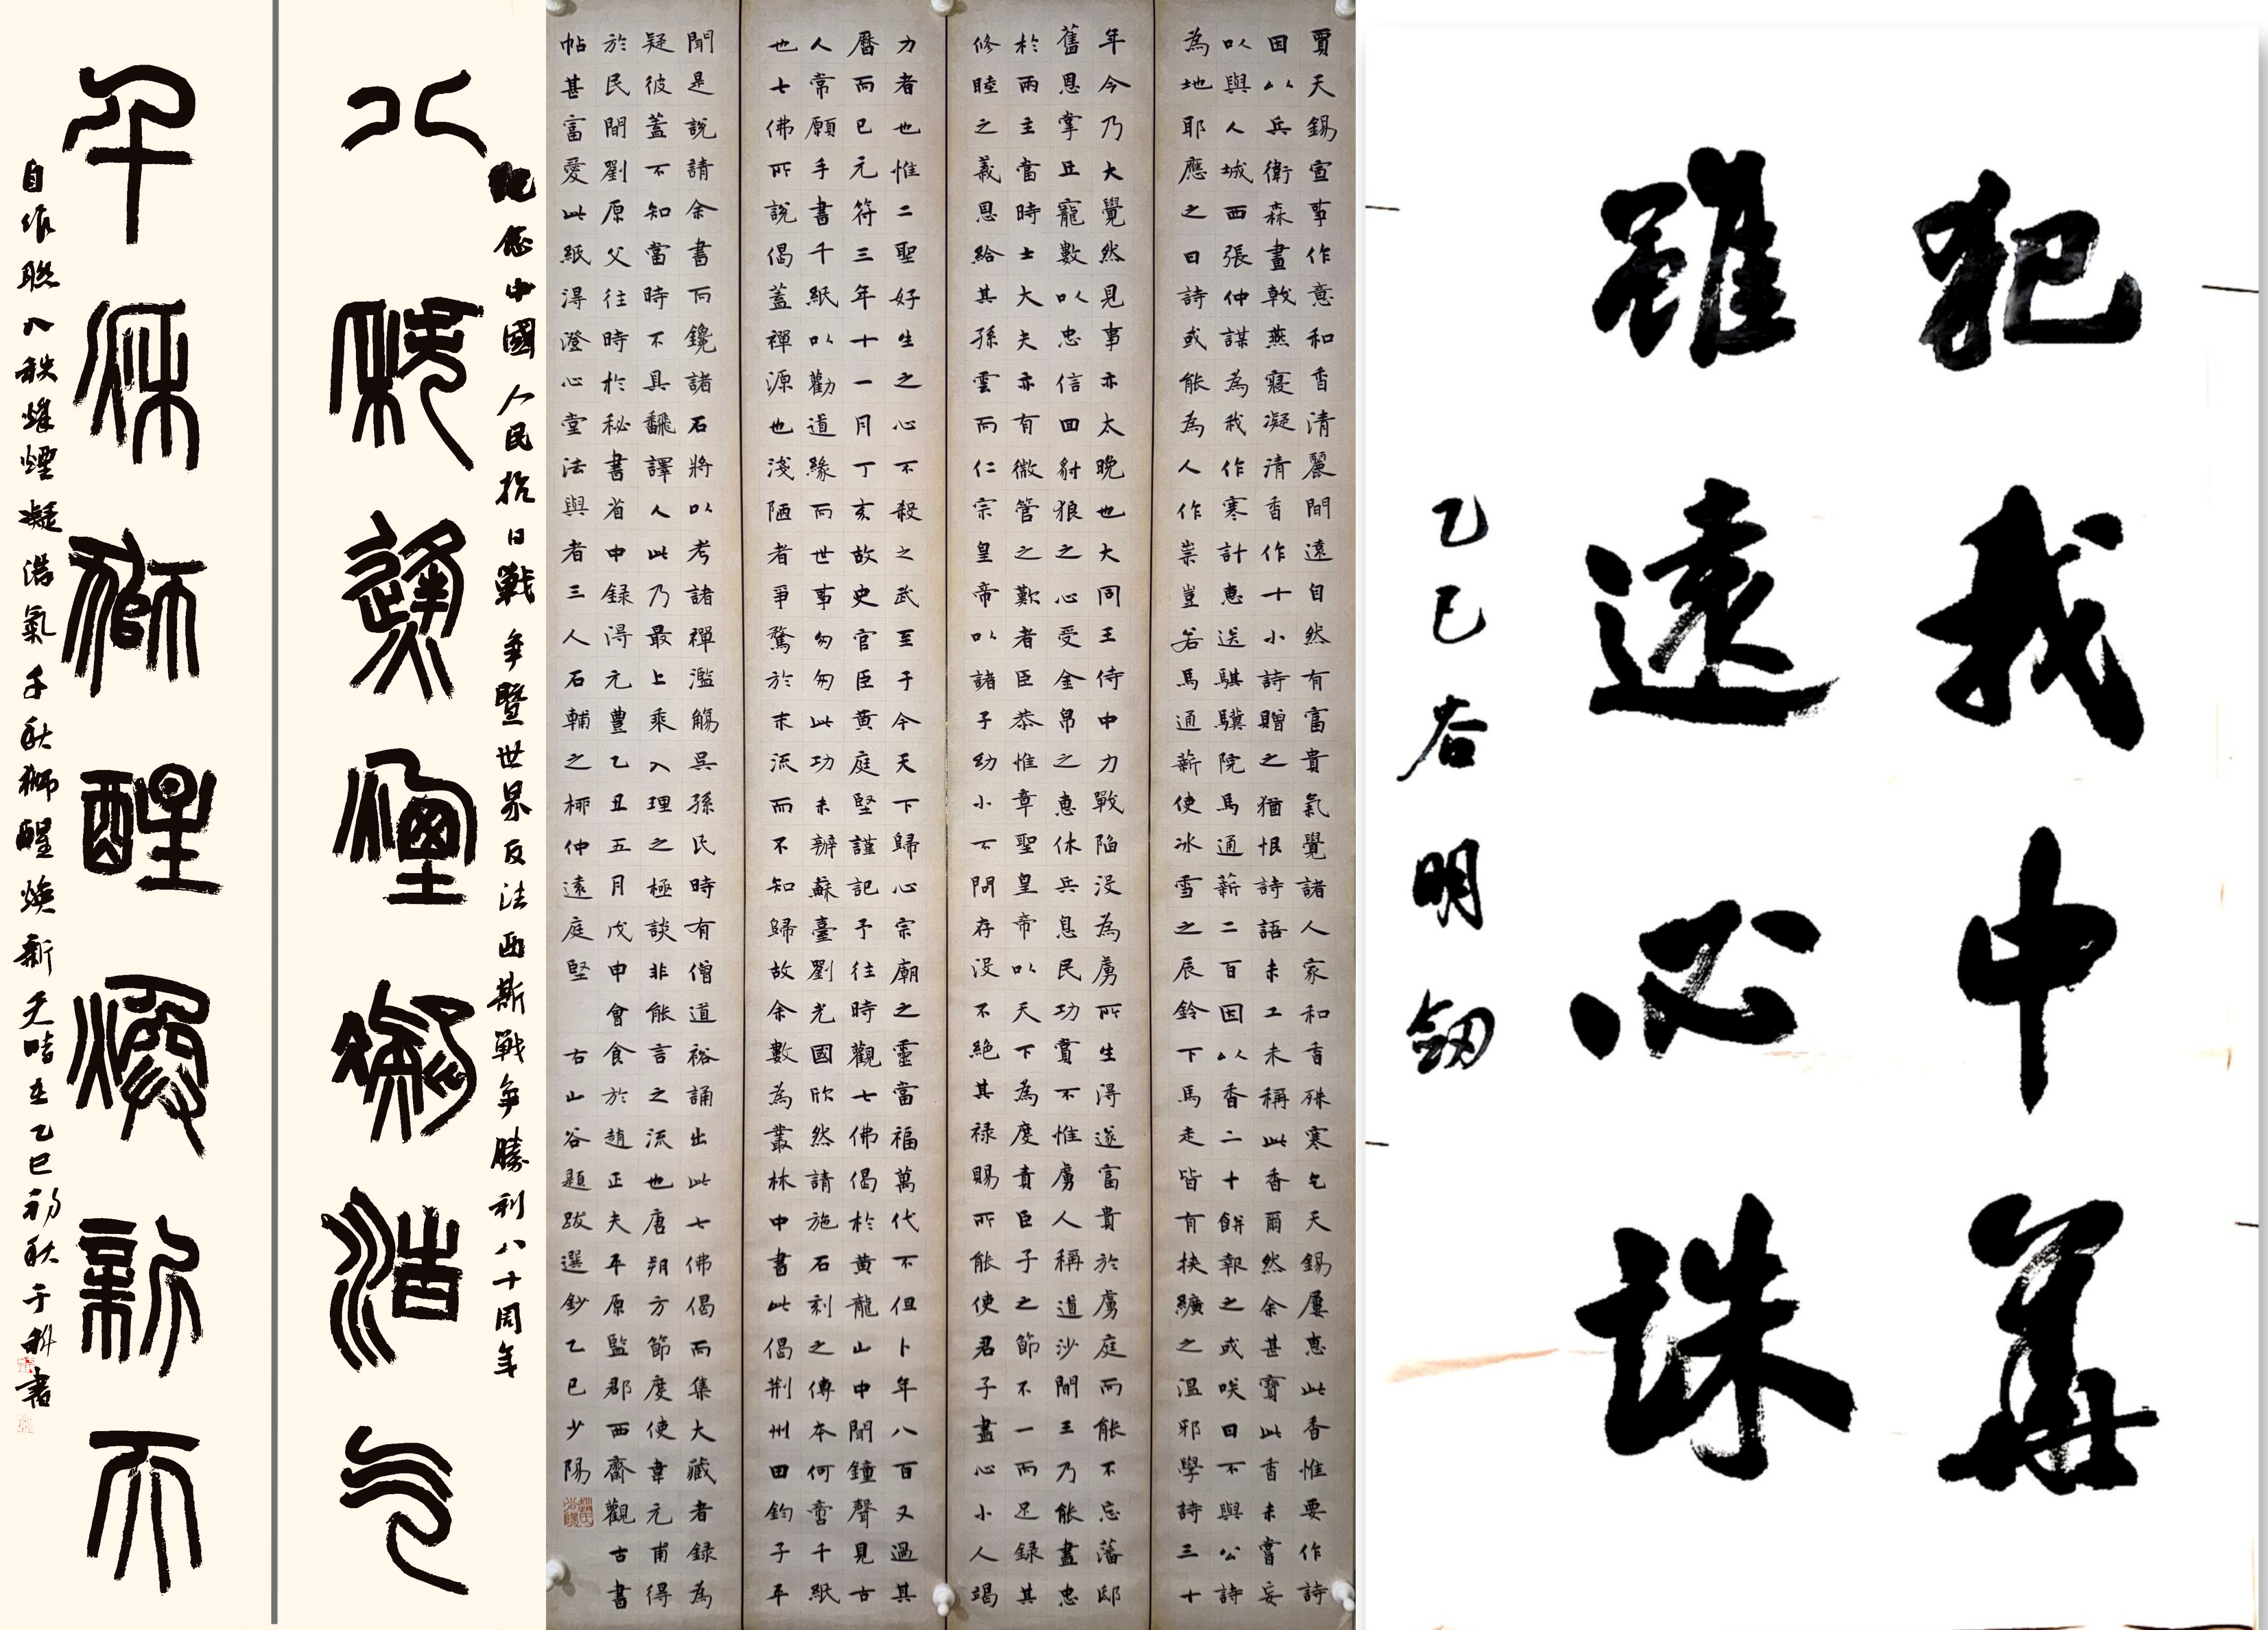 犯我中華
雖遠必誅
乙巳谷明劒
賈天錫宣事作意和香清麗間遠自然有富貴氣覺諸人家和香殊寒乞天錫屢惠此香惟要作詩
因以兵衛森畫戟燕寢凝清香作十小詩贈之猶恨詩語未工未稱此香爾然余甚寶此香未嘗妄
以與人城西張仲謀為我作寒計惠送騏驥院馬通薪二百因以香二十餅報之或咲曰不與公詩
為地耶應之曰詩或能為人作祟豈若馬通薪使冰雪之辰鈴下馬走皆有挾纊之溫邪學詩三十
年今乃大覺然見事亦太晚也大同王侍中力戰陷没為虜所生得遂富貴於虜庭而能不忘藩邸
舊恩掌丑寵數以忠信回豺狼之心受金帛之惠休兵息民功賞不惟虜人稱道沙間王乃能盡忠
於兩主當時士大夫亦有微管之歎者臣恭惟章聖皇帝以天下為度責臣子之節不一而足録其
修睦之義恩給其孫雲而仁宗皇帝以諸子幼小不問存没不絶其禄賜所能使君子盡心小人竭
力者也惟二聖好生之心不殺之武至于今天下歸心宗廟之靈當福萬代不但卜年八百又過其
曆而已元符三年十一月丁亥故史官臣黄庭堅謹記予往時觀七佛偈於黄龍山中聞鐘聲見古
人常願手書千紙以勸道緣而世事匆匆此功未辦蘇臺劉光國欣然請施石刻之傳本何啻千紙
也七佛所説偈蓋禪源也淺陋者爭騖於末流而不知歸故余數為叢林中書此偈荆州田鈞子平
聞是説請余書而鑱諸石將以考諸禪濫觴吳孫氏時有僧道裕誦出此七佛偈而集大藏者録為
疑彼蓋不知當時不具飜譯人此乃最上乘入理之極談非能言之流也唐朔方節度使韋元甫得
於民間劉原父往時於秘書省中録得元豊乙丑五月戊申會食於趙正夫平原監郡西齋觀古書
帖甚富愛此紙得澄心堂法與者三人石輔之栁仲遠庭堅 古山谷題跋選鈔乙巳少陽
紀念中國人民抗日戰争暨世界反法西斯戰争勝利八十周年
八秩烽煙凝浩气
千秋獅醒焕新天
自作聯八秩烽煙凝浩氣千秋獅醒焕新天時在乙巳初秋于科書